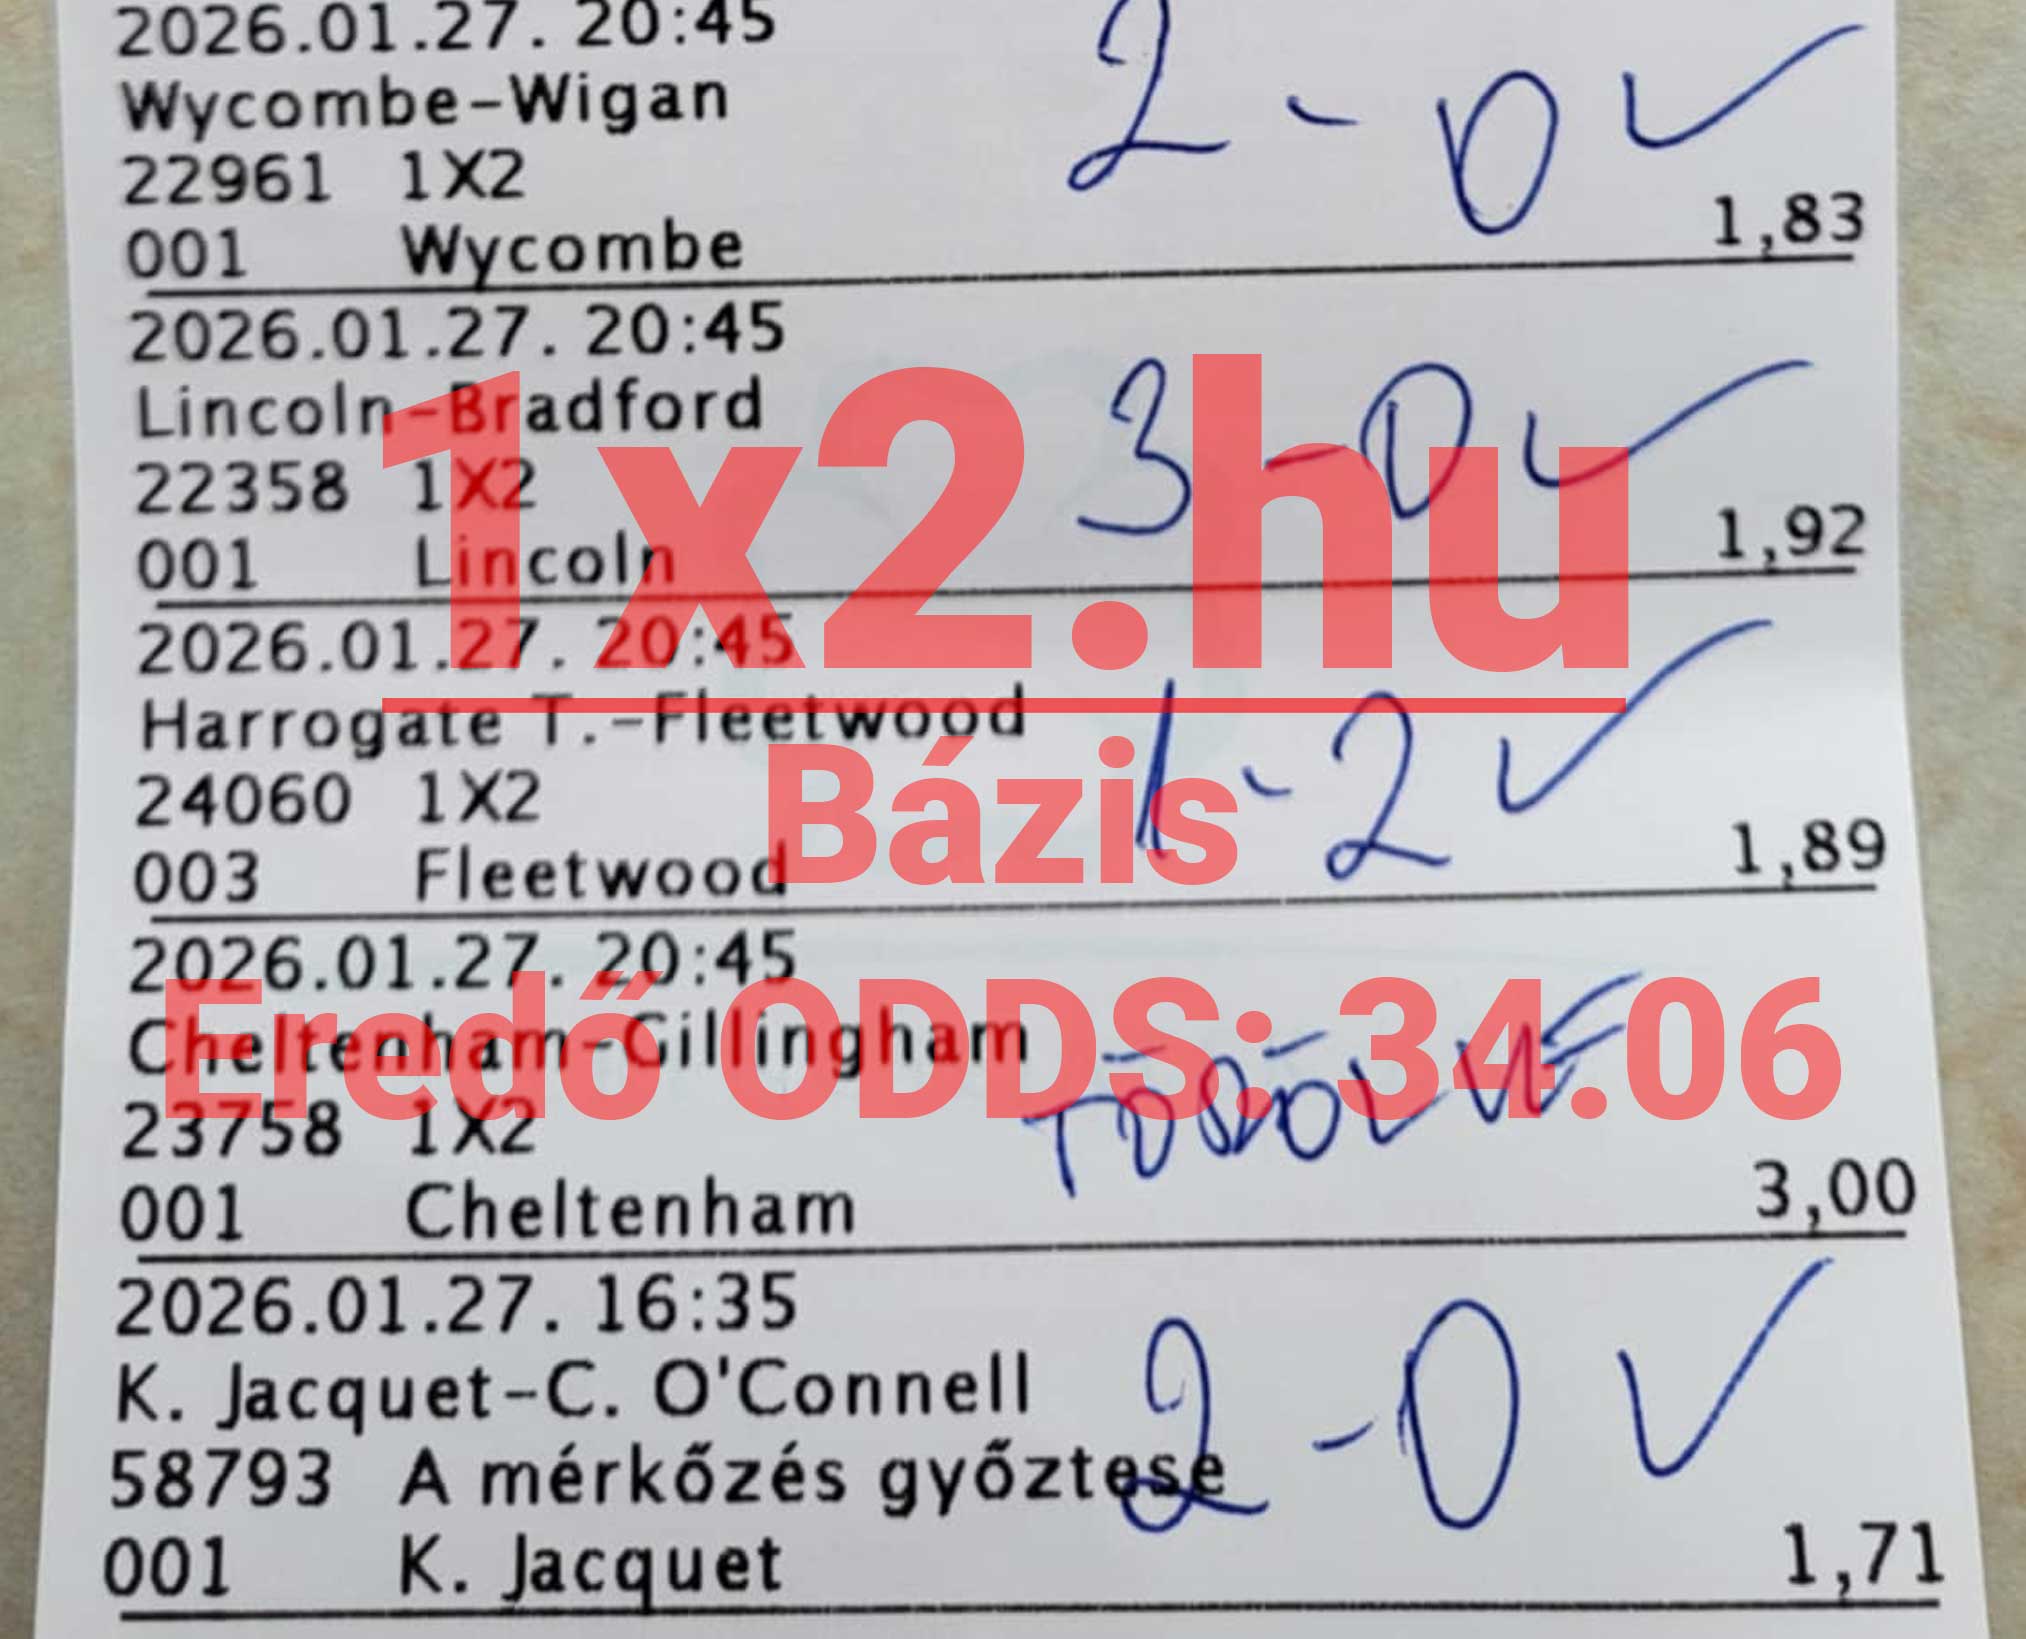 2026.01.27. 20:45
Wycombe-Wigan
2-0 ✓
22961 1X2
001 Wycombe 1,83
2026.01.27. 20:45
Lincoln-Bradford
3-0 ✓
22358 1X2
001 Lincoln 1,92
1x2.hu
2026.01.27. 20:45
Harrogate T.-Fleetwood
1-2 ✓
24060 1X2
Bázis
003 Fleetwood 1,89
2026.01.27. 20:45
Eredő ODDS: 34.06
Cheltenham-Gillingham
TÖRÖLVE
23758 1X2
001 Cheltenham 3,00
2026.01.27. 16:35
K. Jacquet-C. O'Connell
2-0 ✓
58793 A mérkőzés győztese
001 K. Jacquet 1,71